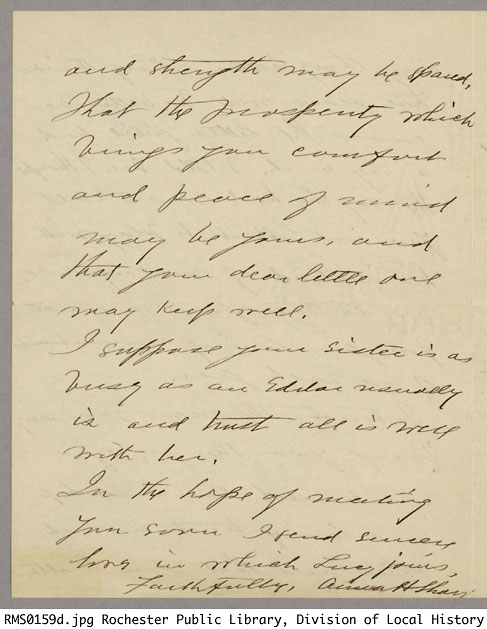 and strength may be spared,
that the prosperity which
brings you comfort
and peace of mind
may be yours, and
that your dear little one
may keep well.
I suppose your sister is as
busy as an Editor usually
is and trust all is well
with her.
In the hope of meeting
you soon I send sincere
love in which Lucy joins,
Faithfully, Anna H Shaw
RMS0159d.jpg Rochester Public Library, Division of Local History